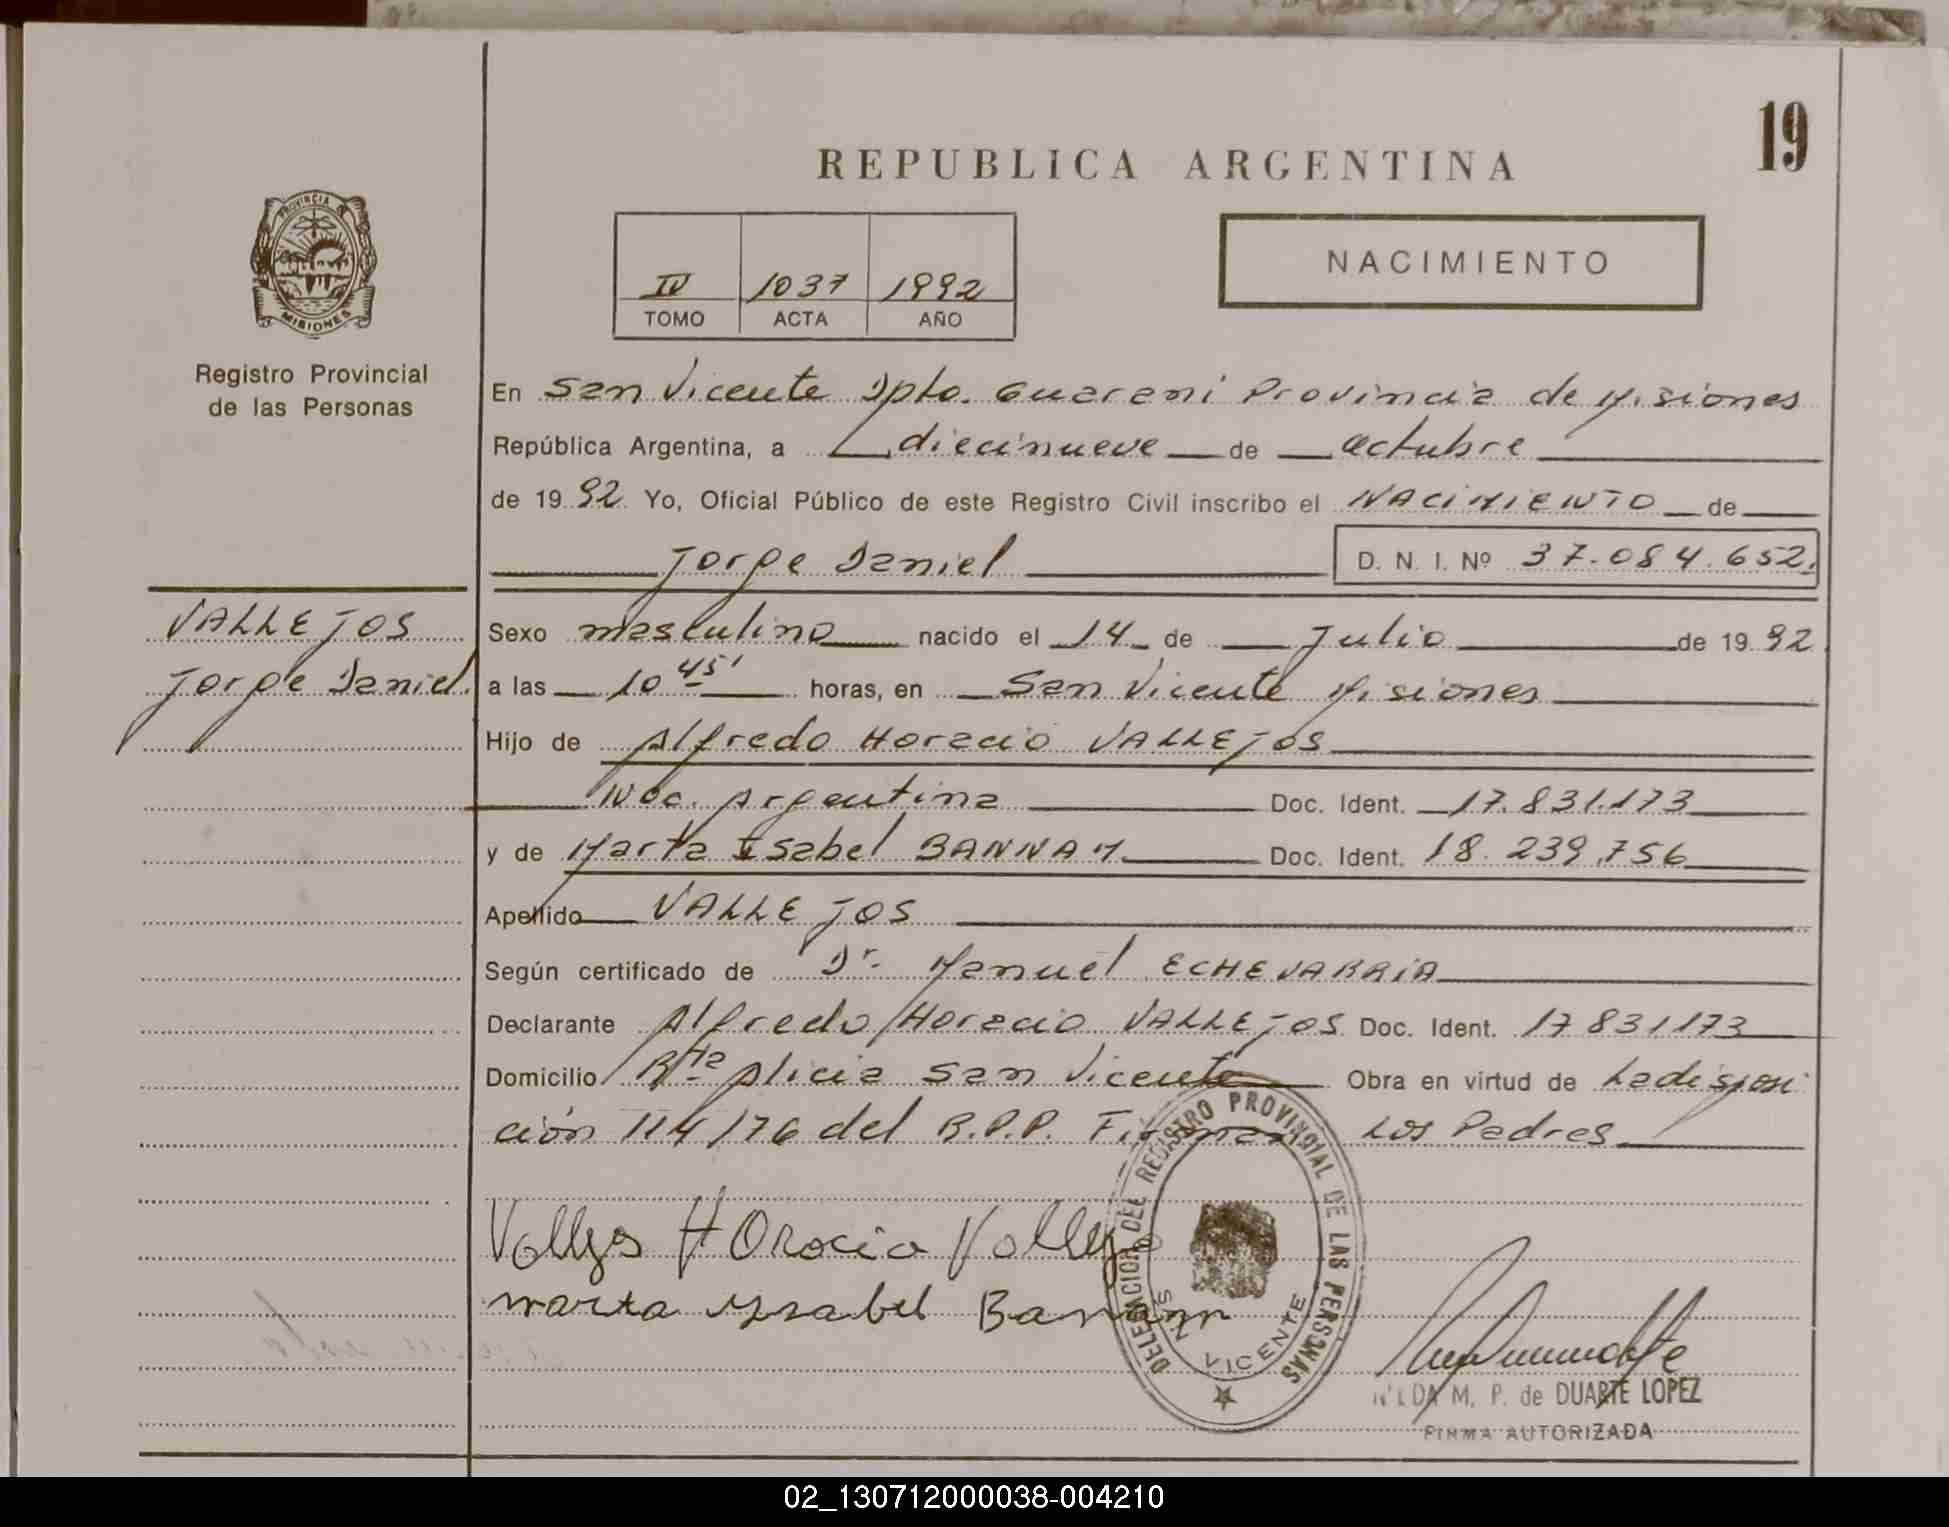 19
REPUBLICA ARGENTINA
PROVINCIA
MISIONES
Registro Provincial
de las Personas
IV 1037 1992
TOMO ACTA AÑO
NACIMIENTO
En San Vicente Dpto. Guarani Provincia de Misiones
República Argentina, a diecinueve de octubre
de 19 92 Yo, Oficial Público de este Registro Civil inscribo el NACIMIENTO de
Jorge Daniel D. N. I. Nº 37.084.652.
VALLEJOS
Jorge Daniel.
Sexo masculino nacido el 14 de Julio de 19 92
a las 10 45' horas, en San Vicente Misiones
Hijo de Alfredo Horacio VALLEJOS
Nac. Argentina Doc. Ident. 17.831.173
y de Marta Isabel BANNAM Doc. Ident. 18.239.756
Apellido VALLEJOS
Según certificado de Dr. Manuel ECHEVARRIA
Declarante Alfredo Horacio VALLEJOS Doc. Ident. 17831173
Domicilio Rta Alicia San Vicente Obra en virtud de La disposi
ción 114/76 del R.P.P. Firman Los Padres
Horacio
Marta Ysabel
DELEGACION DEL REGISTRO PROVINCIAL DE LAS PERSONAS
SAN VICENTE
M. P. de DUARTE LOPEZ
FIRMA AUTORIZADA
02_130712000038-004210